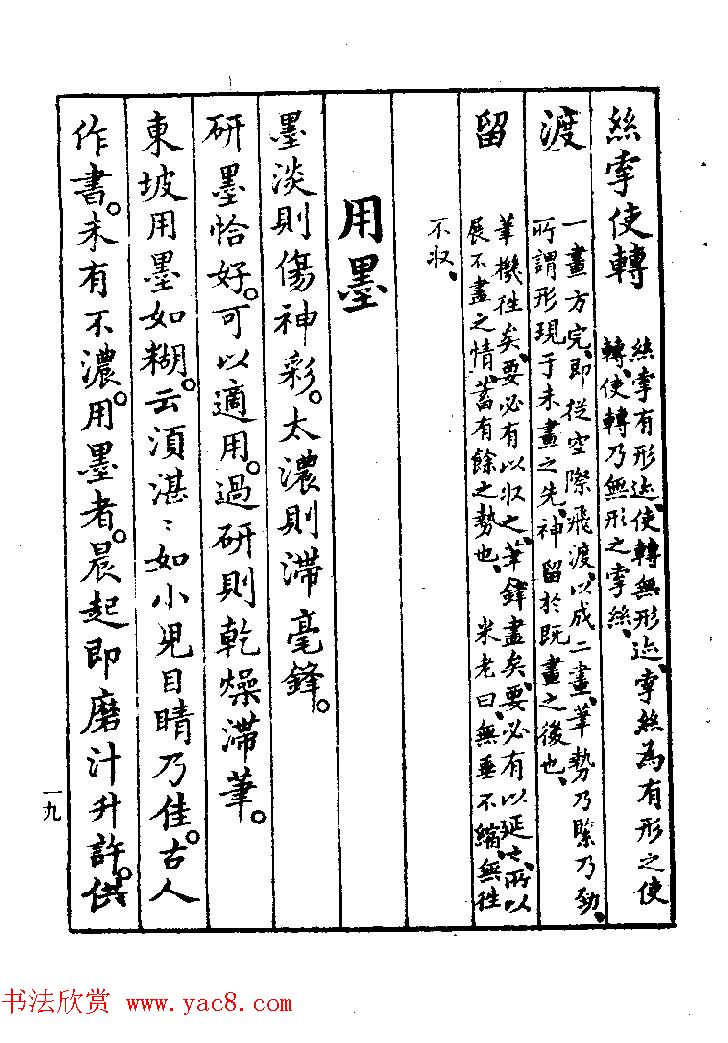 絲牽使轉
絲牽有形迹、使轉無形迹、牽絲為有形之使
轉、使轉乃無形之牽絲、
渡
一畫方完、即從空際飛渡、以成二畫、筆勢乃緊乃勁、
所謂形現于未畫之先、神留於既畫之後也、
留
筆機往矣、要必有以収之、筆鋒盡矣、要必有以延之、所以
展不盡之情、蓄有餘之勢也、 米老曰、無垂不縮、無往
不収、
用墨
墨淡則傷神彩。太濃則滯毫鋒。
研墨恰好。可以適用。過研則乾燥滯筆。
東坡用墨如糊。云須湛湛如小兒目睛乃佳。古人
作書。未有不濃。用墨者。晨起即磨汁升許。供
一九
书法欣赏 www.yac8.com